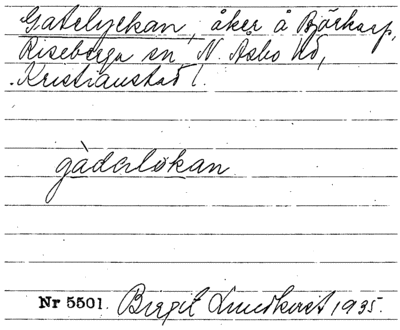 Gatelyckan, åker å Björkarp,
Riseberga sn N. Åsbo hd,
Kristianstad l.
gàdəløkan
Nr 5501. Birgit Lundkvist 1935.